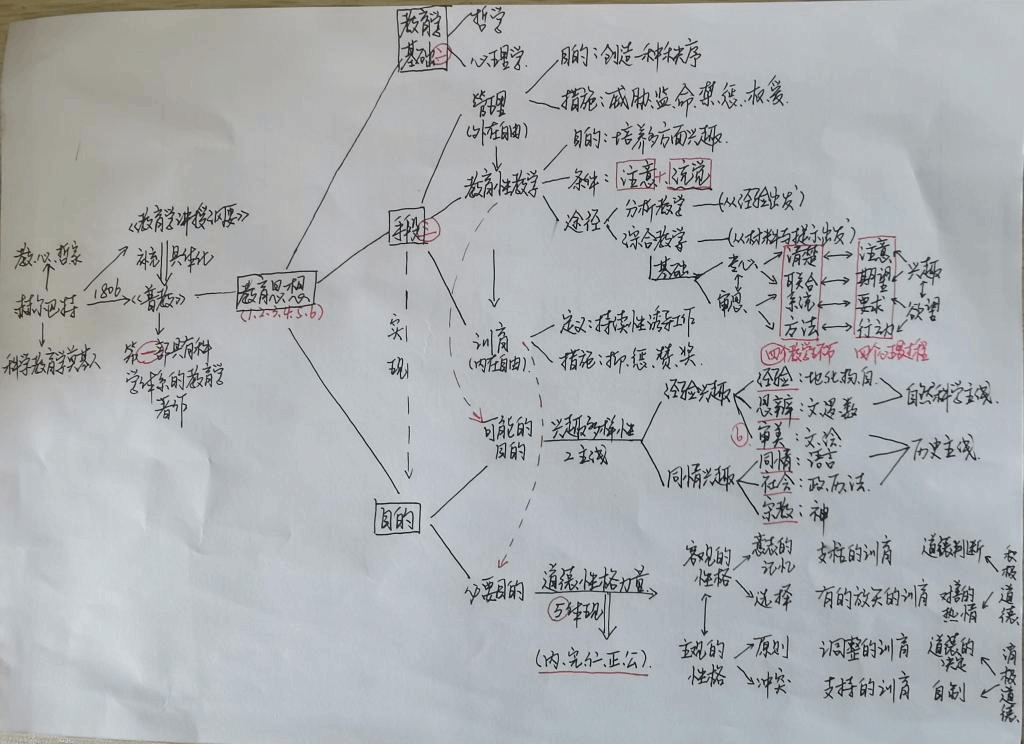 教育学
基础
二
哲学
心理学
管理
(外在自由)
目的：创造一种秩序
措施：威胁、监、命、禁、惩、权、爱
教育性教学
目的：培养多方面兴趣
条件：注意+统觉
途径
分析教学
(从经验出发)
综合教学
基础
专心
审思
清楚
联合
系统
方法
注意
期望
要求
行动
兴趣
欲望
四个教学环节
四个心理过程
手段
三
训育
(内在自由)
定义：持续性诱导工作
措施：抑、惩、赞、奖
实现
教、心、哲家
赫尔巴特
科学教育学奠基人
1806
《教育学讲授纲要》
补充
具体化
《普教》
第一部具有科
学体系的教育学
著作
教育思想
(1.2.3.4.5.6)
目的
可能的
目的
兴趣多样性
2主线
经验兴趣
同情兴趣
⑥
经验：地、化、物、自
思辨：文、逻、数
审美：文、绘
同情：语言
社会：政、历、法
宗教：神
自然科学主线
历史主线
必要目的
道德性格力量
⑤体现
(内、完、仁、正、公)
客观的
性格
意志的
记忆
选择
支柱的训育
有的放矢的训育
道德判断
对善的
热情
积极道德
主观的
性格
原则
冲突
调整的训育
支持的训育
道德的
决定
自制
消极道德